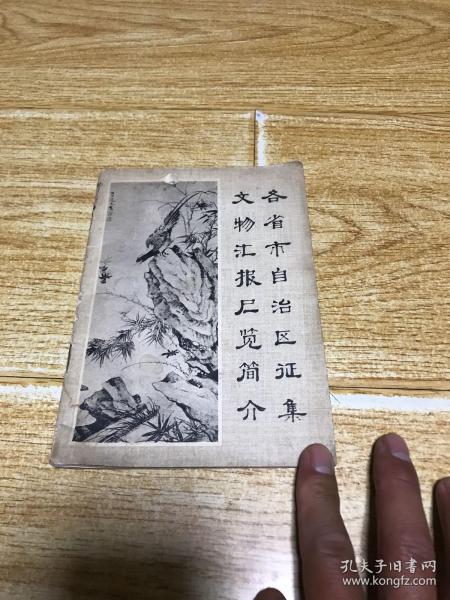 各省市自治区征集
文物汇报尸览简介
孔夫子旧书网
www.kongfz.com